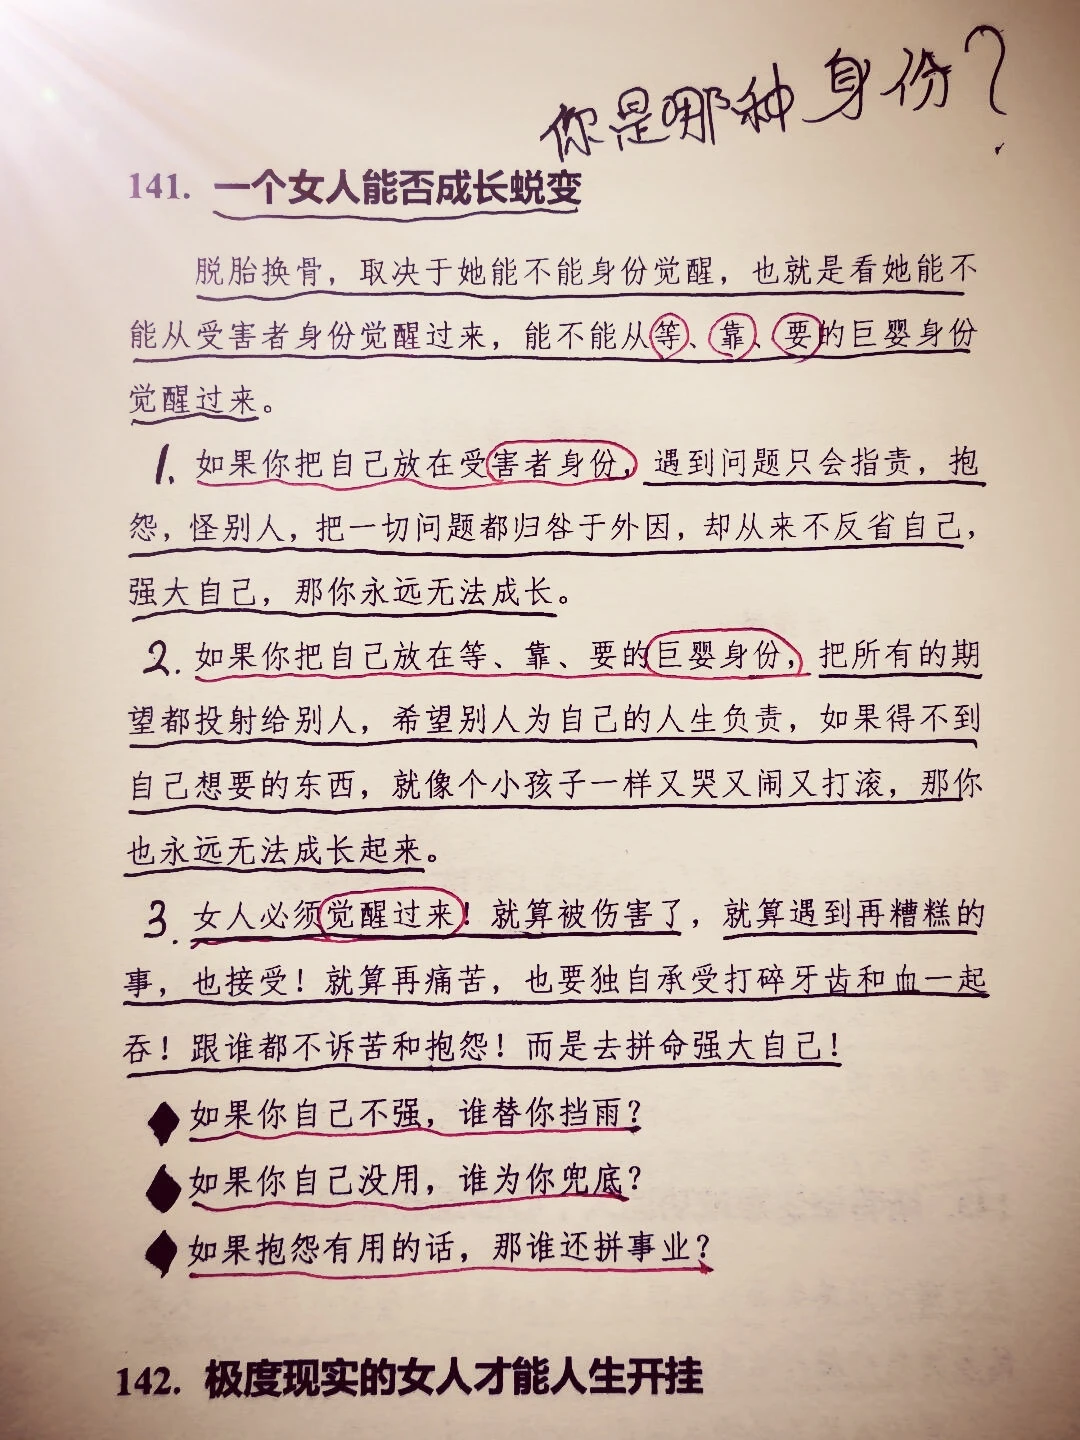 你是哪种身份？
141. 一个女人能否成长蜕变
脱胎换骨，取决于她能不能身份觉醒，也就是看她能不
能从受害者身份觉醒过来，能不能从等、靠、要的巨婴身份
觉醒过来。
1. 如果你把自己放在受害者身份，遇到问题只会指责，抱
怨，怪别人，把一切问题都归咎于外因，却从来不反省自己，
强大自己，那你永远无法成长。
2. 如果你把自己放在等、靠、要的巨婴身份，把所有的期
望都投射给别人，希望别人为自己的人生负责，如果得不到
自己想要的东西，就像个小孩子一样又哭又闹又打滚，那你
也永远无法成长起来。
3. 女人必须觉醒过来！就算被伤害了，就算遇到再糟糕的
事，也接受！就算再痛苦，也要独自承受打碎牙齿和血一起
吞！跟谁都不诉苦和抱怨！而是去拼命强大自己！
如果你自己不强，谁替你挡雨？
如果你自己没用，谁为你兜底？
如果抱怨有用的话，那谁还拼事业？
142. 极度现实的女人才能人生开挂